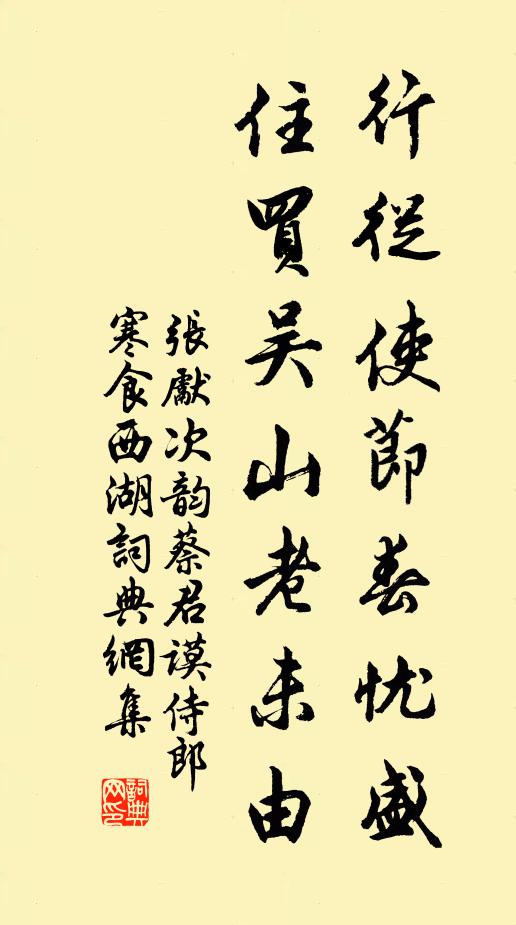 行從使節春忧盛
住買吴山老未由
張獻次韵蔡君謨侍郎
寒食西湖詞典網集
詞典网印